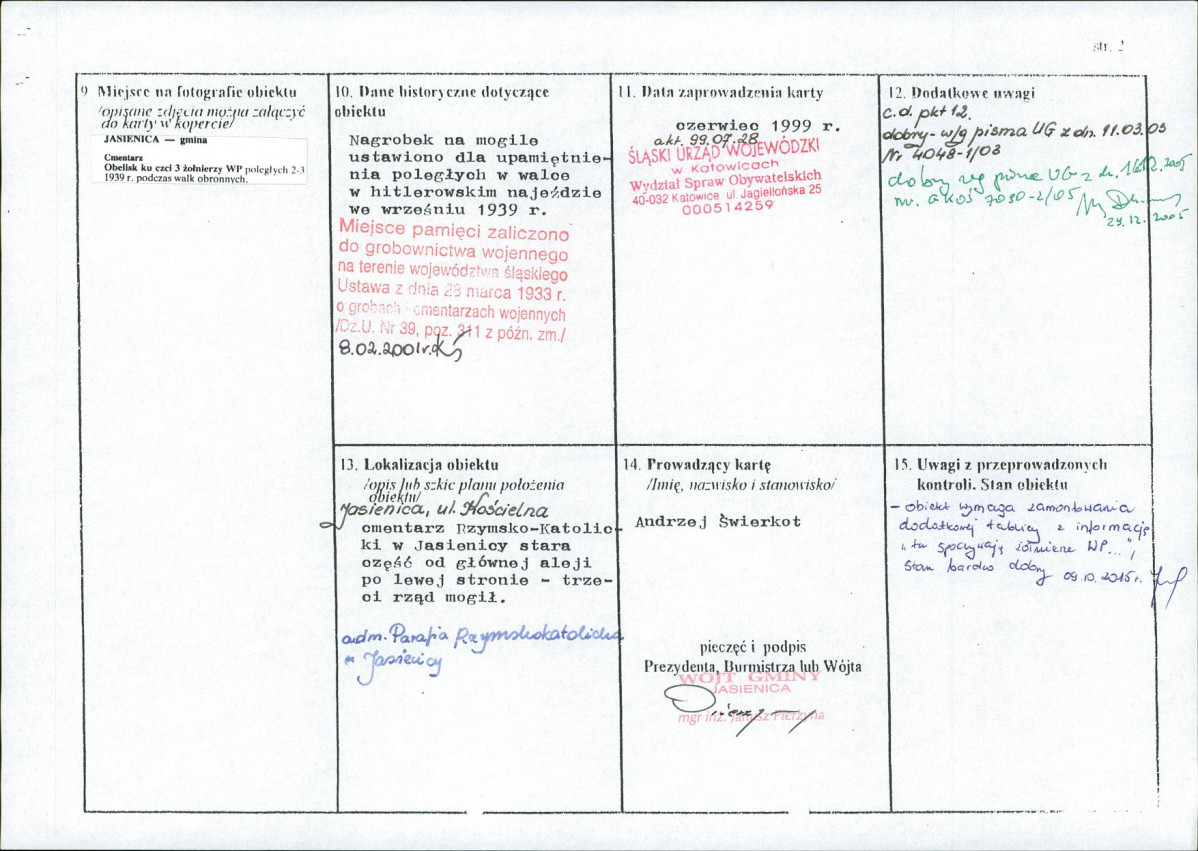 str. 2
9 Miejsce na fotografię obiektu
/opisane zdjęcia można załączyć
do karty w kopercie/
JASIENICA — gmina
Cmentarz
Obelisk ku czci 3 żołnierzy WP poległych 2-3
1939 r. podczas walk obronnych.
10. Dane historyczne dotyczące
obiektu
Nagrobek na mogile
ustawiono dla upamiętnie-
nia poległych w walce
w hitlerowskim najeździe
we wrześniu 1939 r.
Miejsce pamięci zaliczono
do grobownictwa wojennego
na terenie województwa śląskiego
Ustawa z dnia 28 marca 1933 r.
o grobach i cmentarzach wojennych
/Dz.U. Nr 39, poz. 311 z późn. zm./
8.02.2001r.
11. Data zaprowadzenia karty
czerwiec 1999 r.
akt. 99.07.28
ŚLĄSKI URZĄD WOJEWÓDZKI
w Katowicach
Wydział Spraw Obywatelskich
40-032 Katowice ul. Jagiellońska 25
000514259
12. Dodatkowe uwagi
c.d. pkt 12.
dobry - w/g pisma UG z dn. 11.03.03
Nr 4048-1/03
dobry wg pisma UG z dn. 2005
nr. 7030-2/05
29.12.2005
13. Lokalizacja obiektu
/opis lub szkic planu położenia
obiektu/
Jasienica, ul. Kościelna
cmentarz Rzymsko-Katolic-
ki w Jasienicy stara
część od głównej aleji
po lewej stronie - trze-
ci rząd mogił.
adm. Parafia Rzymskokatolicka
w Jasienicy
14. Prowadzący kartę
/Imię, nazwisko i stanowisko/
Andrzej Świerkot
pieczęć i podpis
Prezydenta, Burmistrza lub Wójta
WÓJT GMINY
JASIENICA
mgr inż. Janusz Pierzyna
15. Uwagi z przeprowadzonych
kontroli. Stan obiektu
- obiekt wymaga zamontowania
dodatkowej tablicy z informacją
"tu spoczywają żołnierze WP...",
stan bardzo dobry 09.10.2015 r.